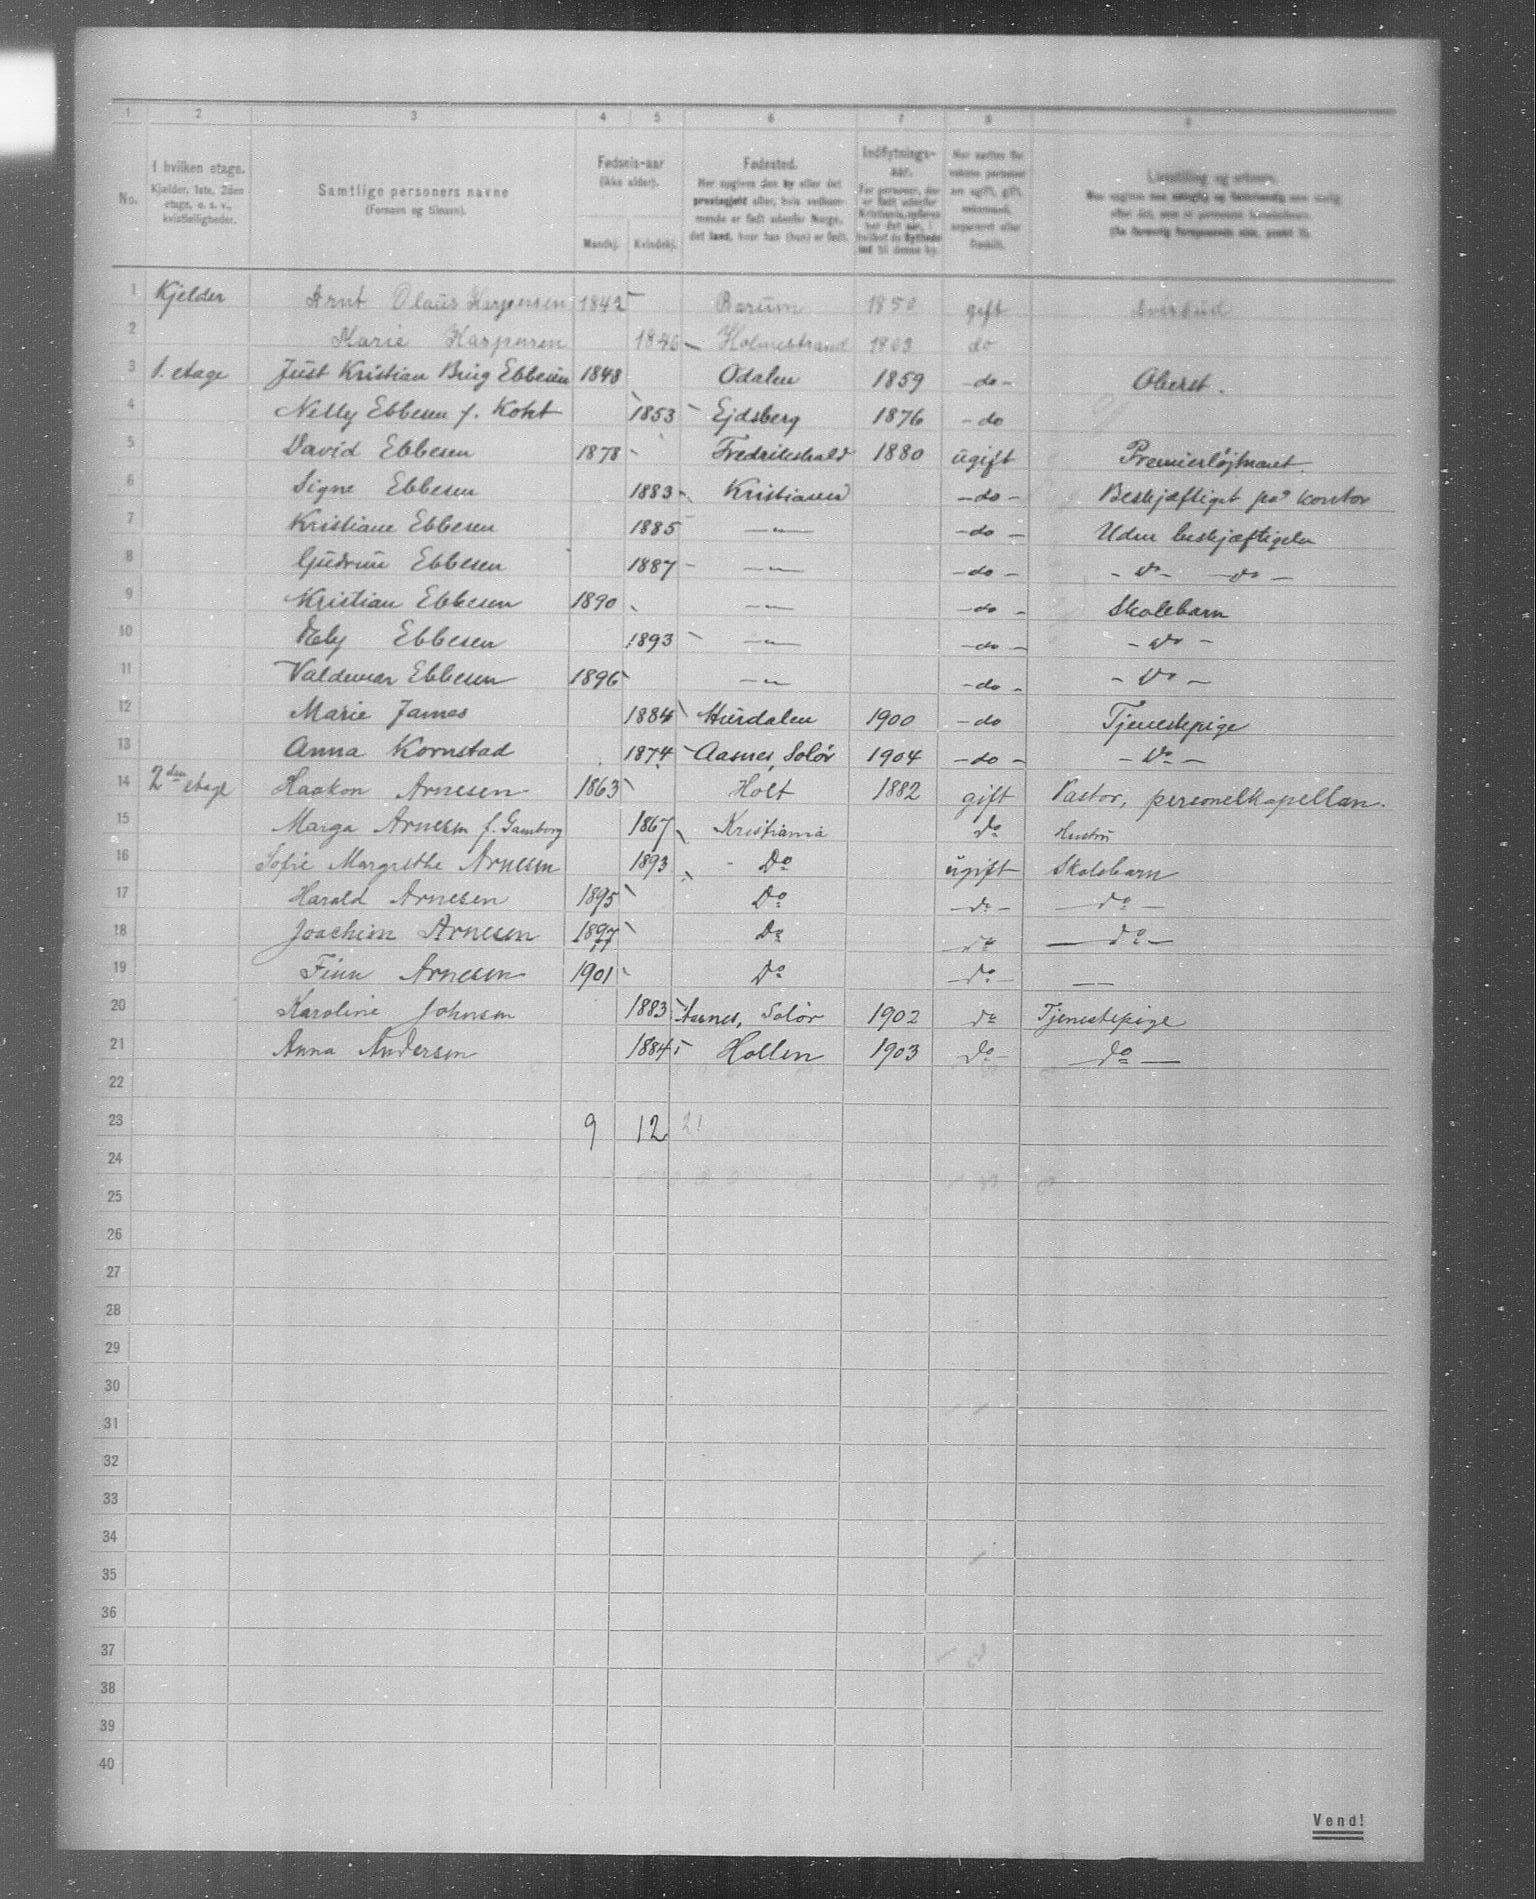 1 2 3 4 5 6 7 8 9
No. I hvilken etage. Kjælder, 1ste, 2den etage, o. s. v., kvistleiligheder. Samtlige personers navne (Fornavn og tilnavn). Fødsels-aar (ikke alder). Mandkj. Kvindekj. Fødested. Her opgives den by eller det præstegjeld eller, hvis vedkommende er født udenfor Norge, det land, hvor han (hun) er født. Indflytnings-aar. For personer, der er født udenfor Kristiania, opføres her det aar, i hvilket de flyttede ind til denne by.
1 Kjelder Arnt Olaus Kaspersen 1842 Barum 1850 gift
2 Marie Kaspersen 1846 Holmestrand 1863 do
3 1. etage Just Kristian Brug Ebbesen 1848 Odalen 1859 - do - Oberst.
4 Nelly Ebbesen f. Koht 1853 Ejdsberg 1876 - do
5 David Ebbesen 1878 Fredrikshald 1880 ugift Premierløjtnant
6 Signe Ebbesen 1883 Kristiania - do - Beskjæftiget på kontor
7 Kristiane Ebbesen 1885 —"— - do - Uden beskjæftigelse
8 Gudrun Ebbesen 1887 —"— - do - - do - - do -
9 Kristian Ebbesen 1890 —"— - do - Skolebarn
10 Ebbesen 1893 —"— - do - - do -
11 Valdemar Ebbesen 1896 —"— - do - - do -
12 Marie James 1884 Hurdalen 1900 - do Tjenestepige
13 Anna Kornstad 1874 Aasnes, Solør 1904 - do - - Do -
14 2den etage Haakon Arnesen 1863 Holt 1882 gift Pastor, personelkapellan.
15 Marga Arnesen f. Gamborg 1867 Kristiania do Hustru
16 Sofie Margrethe Arnesen 1893 - Do ugift Skolebarn
17 Harald Arnesen 1895 Do - do - - do -
18 Joachim Arnesen 1897 Do - do - do -
19 Finn Arnesen 1901 Do - do - —
20 Karoline Johnsen 1883 Aasnes, Solør 1902 do Tjenestepige
21 Anna Andersen 1884 Hollen 1903 do - - do -
22
23 9 12 21
24
25
26
27
28
29
30
31
32
33
34
35
36
37
38
39
40
Vend!